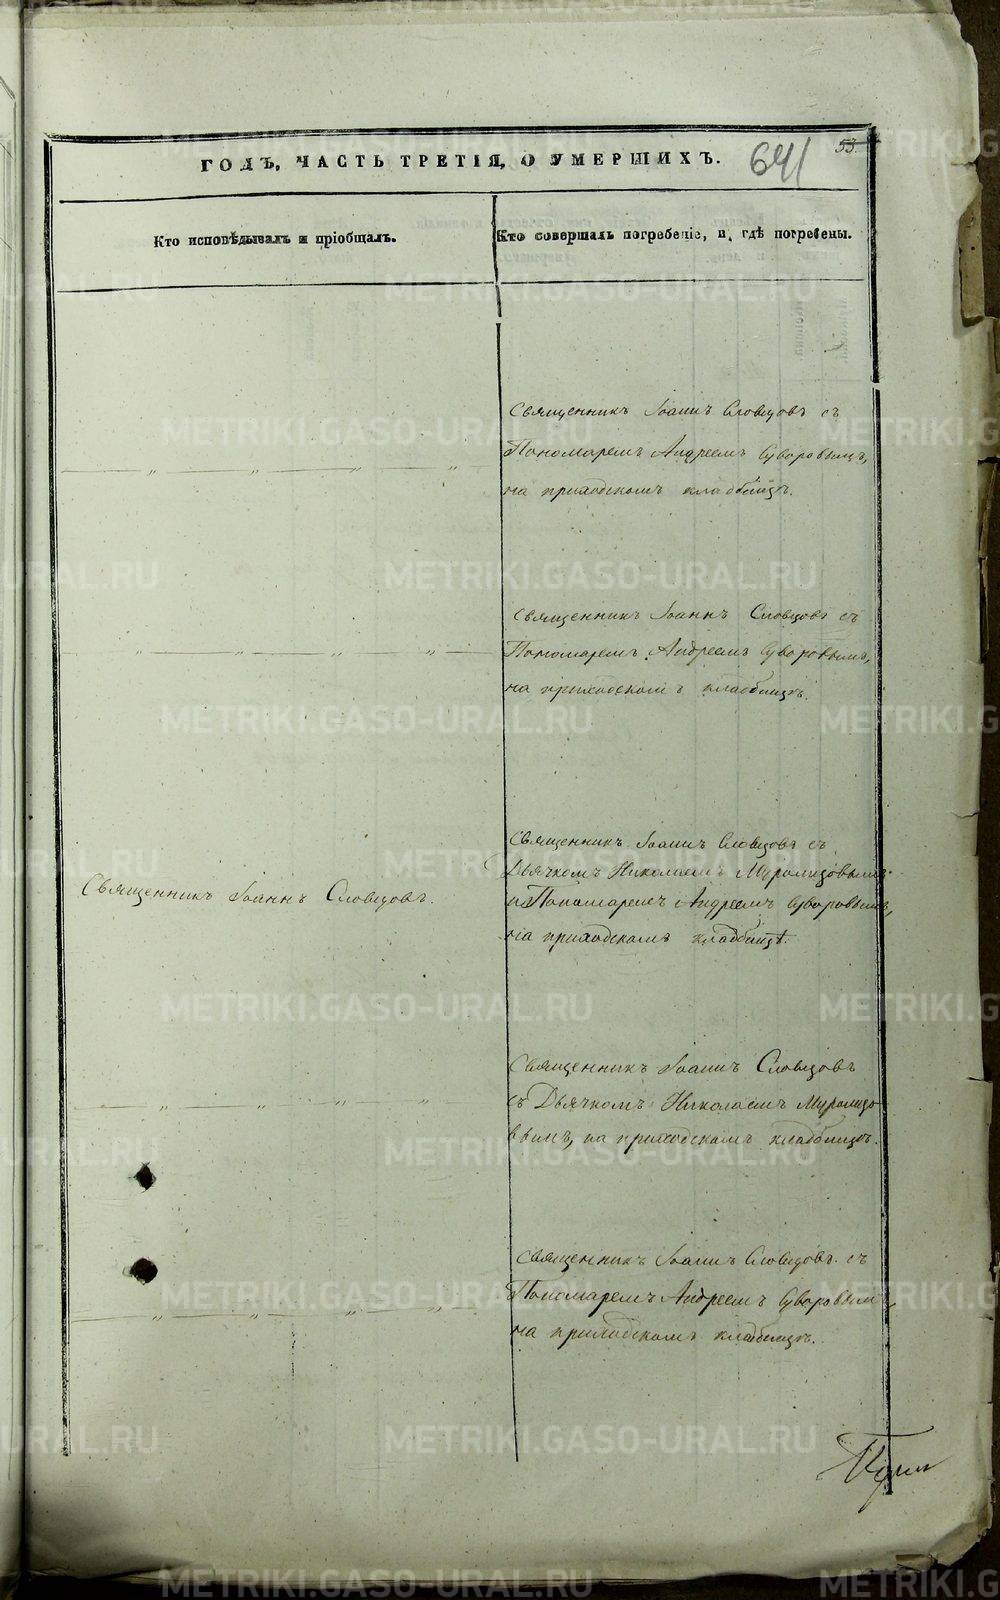 ГОДЪ, ЧАСТЬ ТРЕТІЯ, О УМЕРШИХЪ.
641
53
Кто исповѣдывалъ и пріобщалъ.
Кто совершалъ погребеніе, и гдѣ погребены.
Священникъ Іоаннъ Словцовъ съ
Пономаремъ Андреемъ Суворовымъ,
на приходскомъ кладбищѣ.
Священникъ Іоаннъ Словцовъ съ
Пономаремъ Андреемъ Суворовымъ,
на приходскомъ кладбищѣ.
Священникъ Іоаннъ Словцовъ.
Священникъ Іоаннъ Словцовъ съ
Дьячкомъ Николаемъ
и Пономаремъ Андреемъ Суворовымъ,
на приходскомъ кладбищѣ.
Священникъ Іоаннъ Словцовъ
съ Дьячкомъ Николаемъ
на приходскомъ кладбищѣ.
Священникъ Іоаннъ Словцовъ съ
Пономаремъ Андреемъ Суворовымъ,
на приходскомъ кладбищѣ.
METRIKI.GASO-URAL.RU